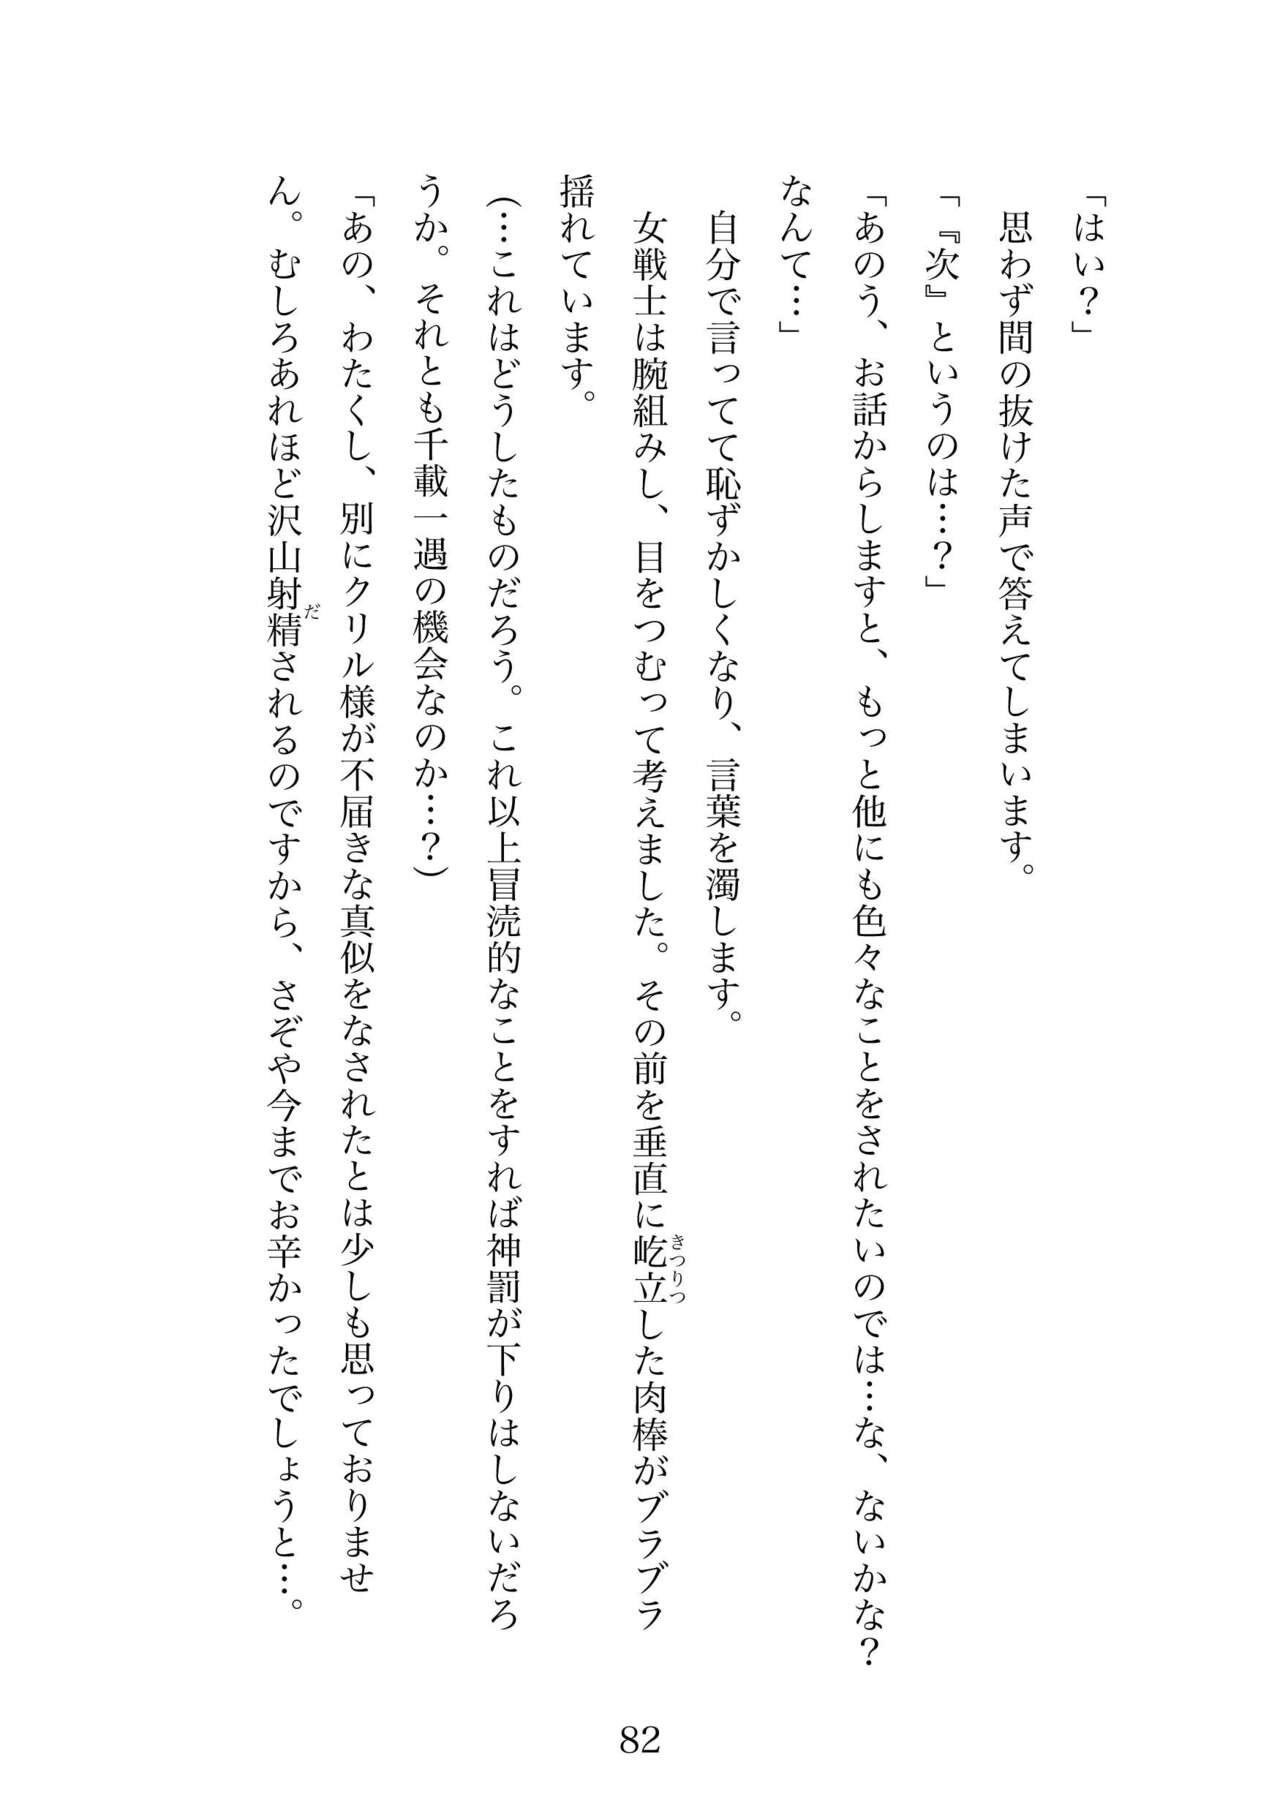 「はい？」
　思わず間の抜けた声で答えてしまいます。
「『次』というのは…？」
「あのう、お話からしますと、もっと他にも色々なことをされたいのでは…な、ないかな？
なんて…」
　自分で言ってて恥ずかしくなり、言葉を濁します。
　女戦士は腕組みし、目をつむって考えました。その前を垂直に屹立した肉棒がブラブラ
きつりつ
揺れています。
（…これはどうしたものだろう。これ以上冒涜的なことをすれば神罰が下りはしないだろ
うか。それとも千載一遇の機会なのか…？）
「あの、わたくし、別にクリル様が不届きな真似をなされたとは少しも思っておりませ
ん。むしろあれほど沢山射精されるのですから、さぞや今までお辛かったでしょうと…。
だ
82